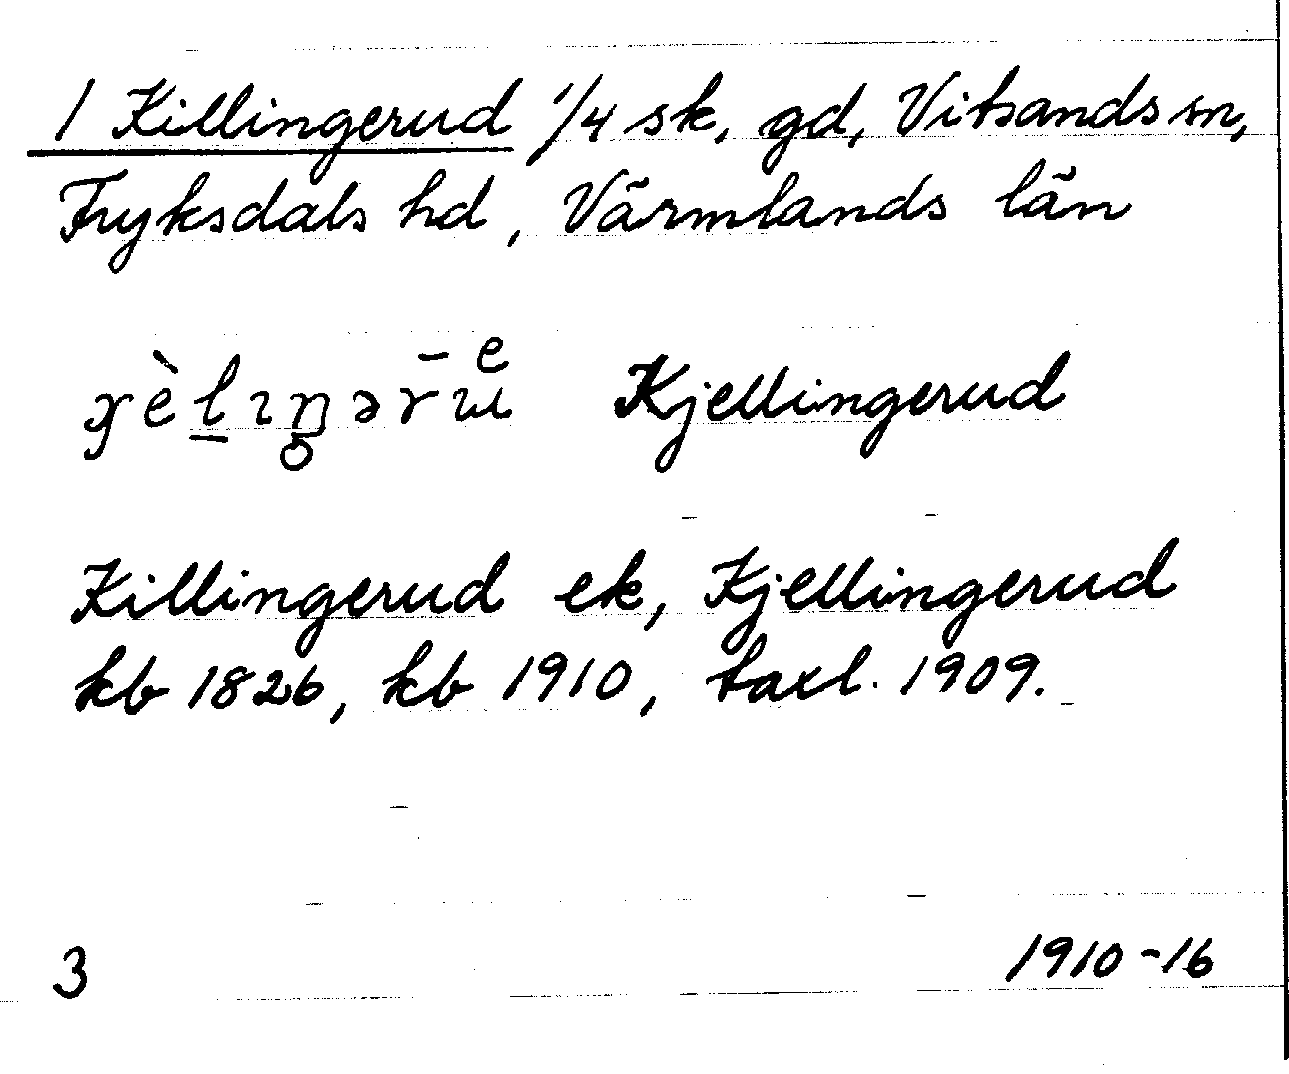 1 Killingerud 1/4 sk, gd, Vitsands sn,
Fryksdals hd, Värmlands län
Kjellingerud
Killingerud ek, Kjellingerud
kb 1826, kb 1910, taxl. 1909.
3 1910-16